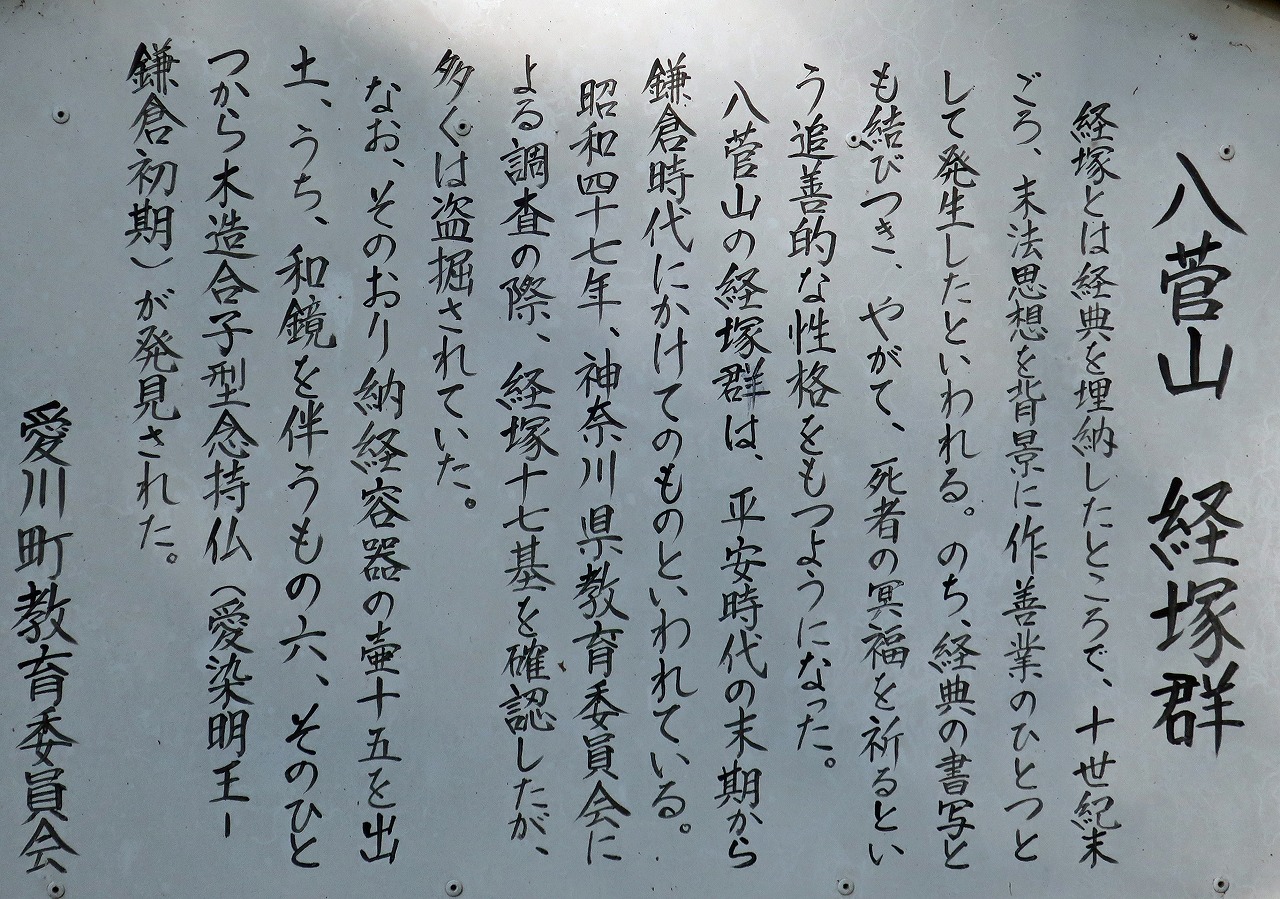 八菅山 経塚群
経塚とは経典を埋納したところで、十世紀末
ごろ、末法思想を背景に作善業のひとつと
して発生したといわれる。のち、経典の書写と
も結びつき、やがて、死者の冥福を祈るとい
う追善的な性格をもつようになった。
八菅山の経塚群は、平安時代の末期から
鎌倉時代にかけてのものといわれている。
昭和四十七年、神奈川県教育委員会に
よる調査の際、経塚十七基を確認したが、
多くは盗掘されていた。
なお、そのおり納経容器の壷十五を出
土、うち、和鏡を伴うもの六、そのひと
つから木造合子型念持仏(愛染明王ー
鎌倉初期)が発見された。
愛川町教育委員会